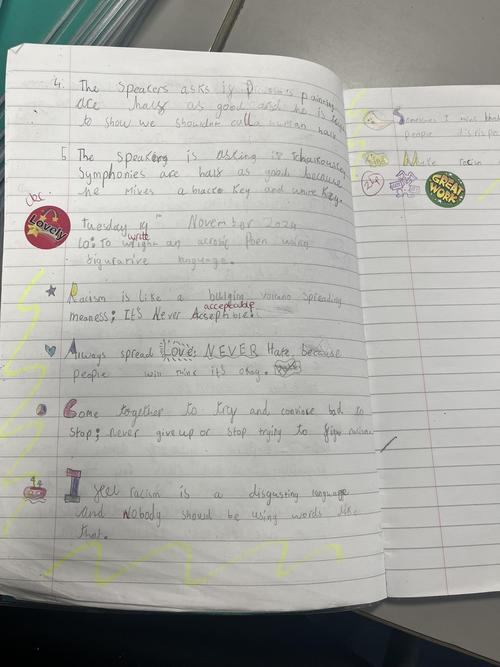 4. The Speakers asks if Picasso's
are half as good and he is
to show we shouldn't call a human half
5. The speaking is asking if Tchaikovsky
Symphonies are half as good because
he mixes a black key and white key.
Lovely
Tuesday 19th November 2024
write
LO: To wright an acrostic Poem using
figurative language.
Racism is like a bulging volcano spreading
acceptable
meaness; It's Never
Always spread LOVE; NEVER Hate, because
people will think it's okay.
Come together to try and convince bad to
Stop; never give up or stop trying to
I feel racism is a disgusting language
and Nobody should be using words like
that.
Sometimes I
people
Make racism
GREAT WORK